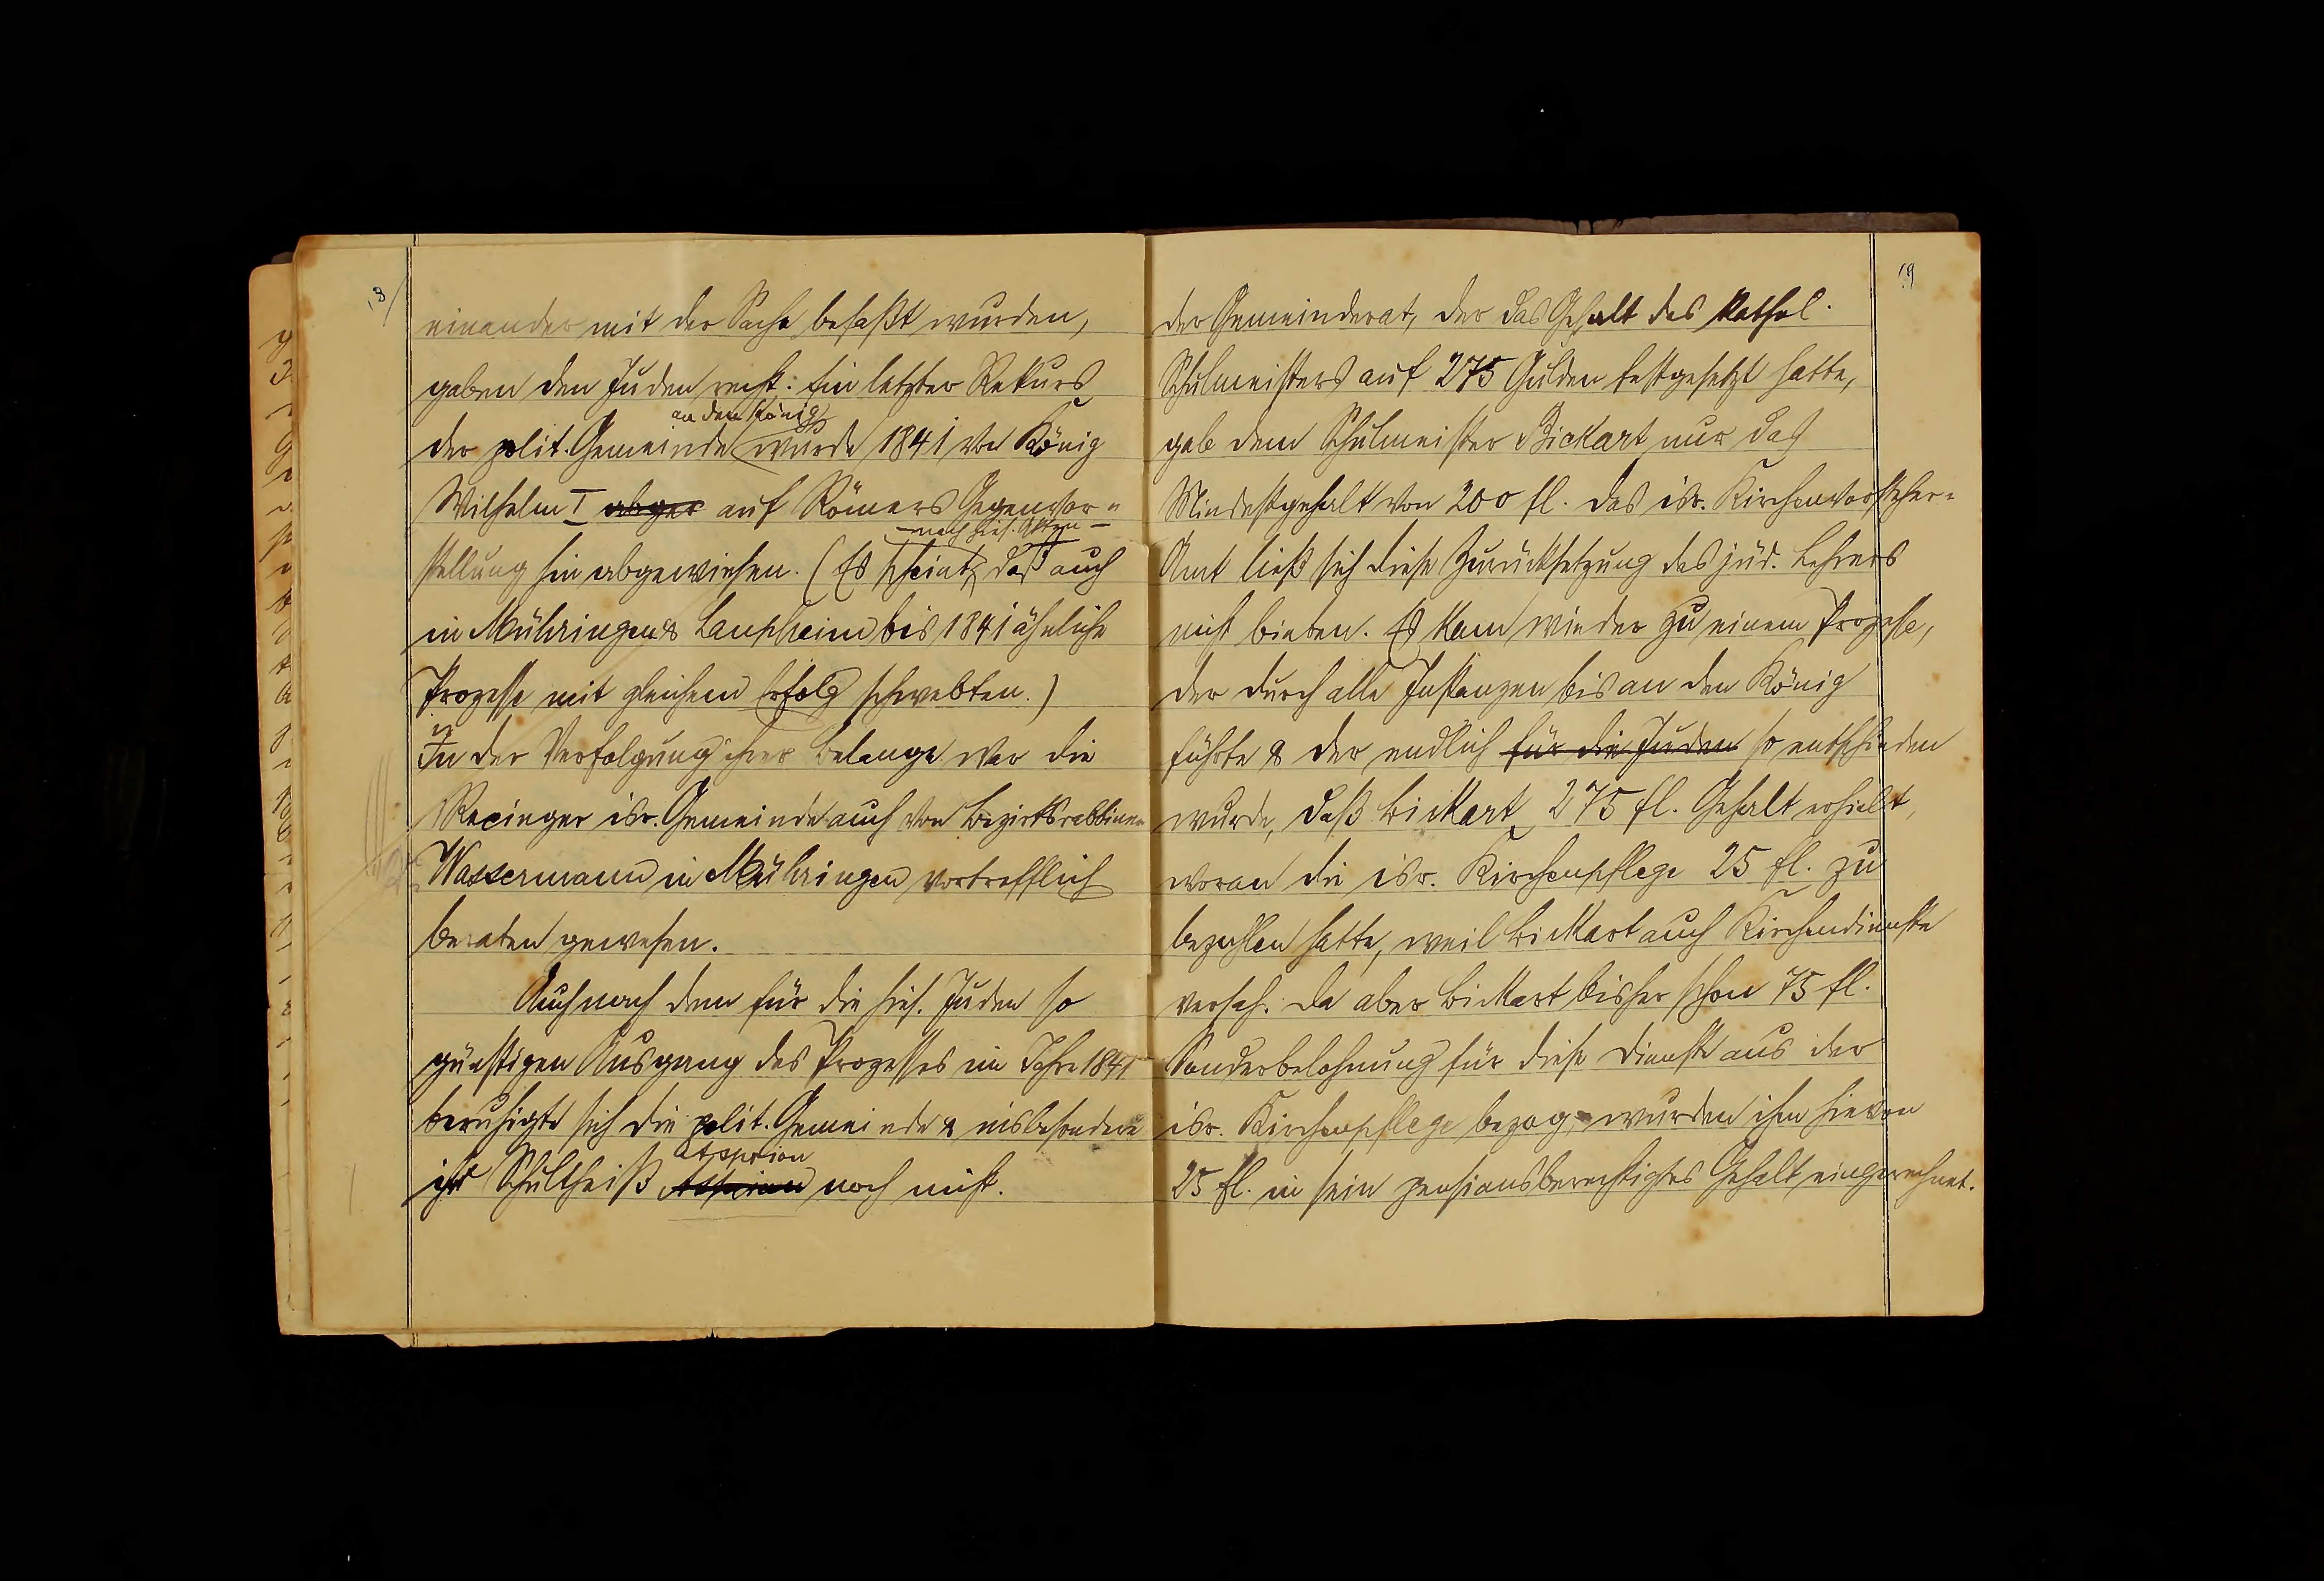 18
einander mit der Sache befaßt wurden,
gaben den Juden recht. Ein letzter Rekurs
an den König
der polit. Gemeinde wurde 1841 von König
Wilhelm I abger auf Römers Gegenvor-
- nach hies. Akten -
stellung hin abgewiesen. (Es scheint, daß auch
in Mühringen & Laupheim bis 1841 ähnliche
Prozesse mit gleichem Erfolg schwebten.)
In der Verfolgung ihrer Belange war die
Rexinger isr. Gemeinde auch von Bezirksrabbiner
Wassermann in Mühringen vortrefflich
beraten gewesen.
Auch nach dem für die hies. Juden so
günstigen Ausgang des Prozesses im Jahre 1841
beruhigte sich die polit. Gemeinde & insbesondere
Asprion
ihr Schultheiß noch nicht.
19
der Gemeinderat, der das Gehalt des kathol.
Schulmeisters auf 275 Gulden festgesetzt hatte,
gab dem Schulmeister Bickart nur das
Mindestgehalt von 200 fl. Das isr. Kirchenvorsteher-
Amt ließ sich diese Zurücksetzung des jüd. Lehrers
nicht bieten. Es kam wieder zu einem Prozesse,
der durch alle Instanzen bis an den König
führte & der endlich für die Juden so entschieden
wurde, daß Bickart 275 fl. Gehalt erhielt,
woran die isr. Kirchenpflege 25 fl. zu
bezahlen hatte, weil Bickart auch Kirchendienste
versah. Da aber Bickart bisher schon 75 fl.
Sonderbelohnung für diese Dienste aus der
isr. Kirchenpflege bezog, wurden ihm hievon
25 fl. in sein pensionsberechtigtes Gehalt eingerechnet.